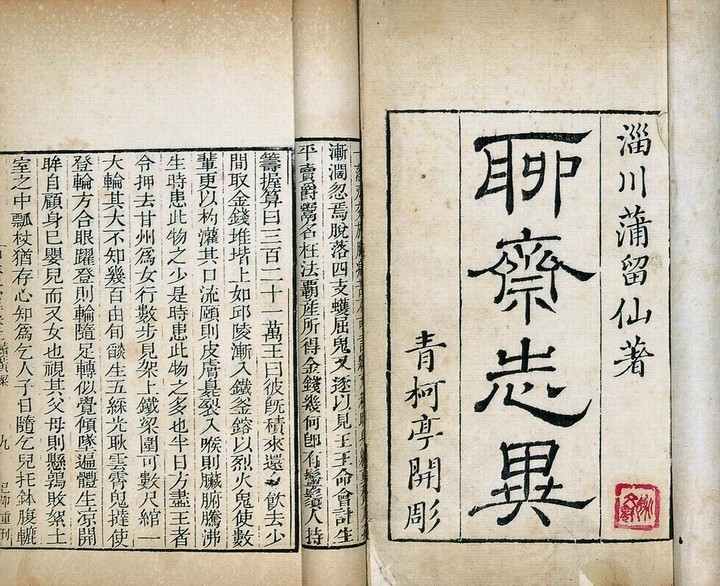 淄川蒲留仙著
聊齋志異
青柯亭開彫
漸濶忽焉脫落四支蠖屈鬼又逐以見王王命會計生
平賣爵鬻名枉法霸產所得金錢幾何即有鬡鬚人持
籌握算曰三百二十一萬王曰彼既積來還飲去少
間取金錢堆堦上如邱陵漸入鐵釜鎔以烈火鬼使數
輩更以杓灌其口流頤則皮膚臭裂入喉則臟腑騰沸
生時患此物之少是時患此物之多也半日方盡王者
令押去甘州為女行數步見架上鐵梁圍可數尺綰一
大輪其大不知幾百由旬燄生五綵光耿雲霄鬼撻使
登輪方合眼躍登則輪隨足轉似覺傾墜遍體生涼開
眸自顧身已嬰兒而又女也視其父母則懸鶉敗絮土
室之中瓢杖猶存心知為乞人子日隨乞兒托鉢腹轆